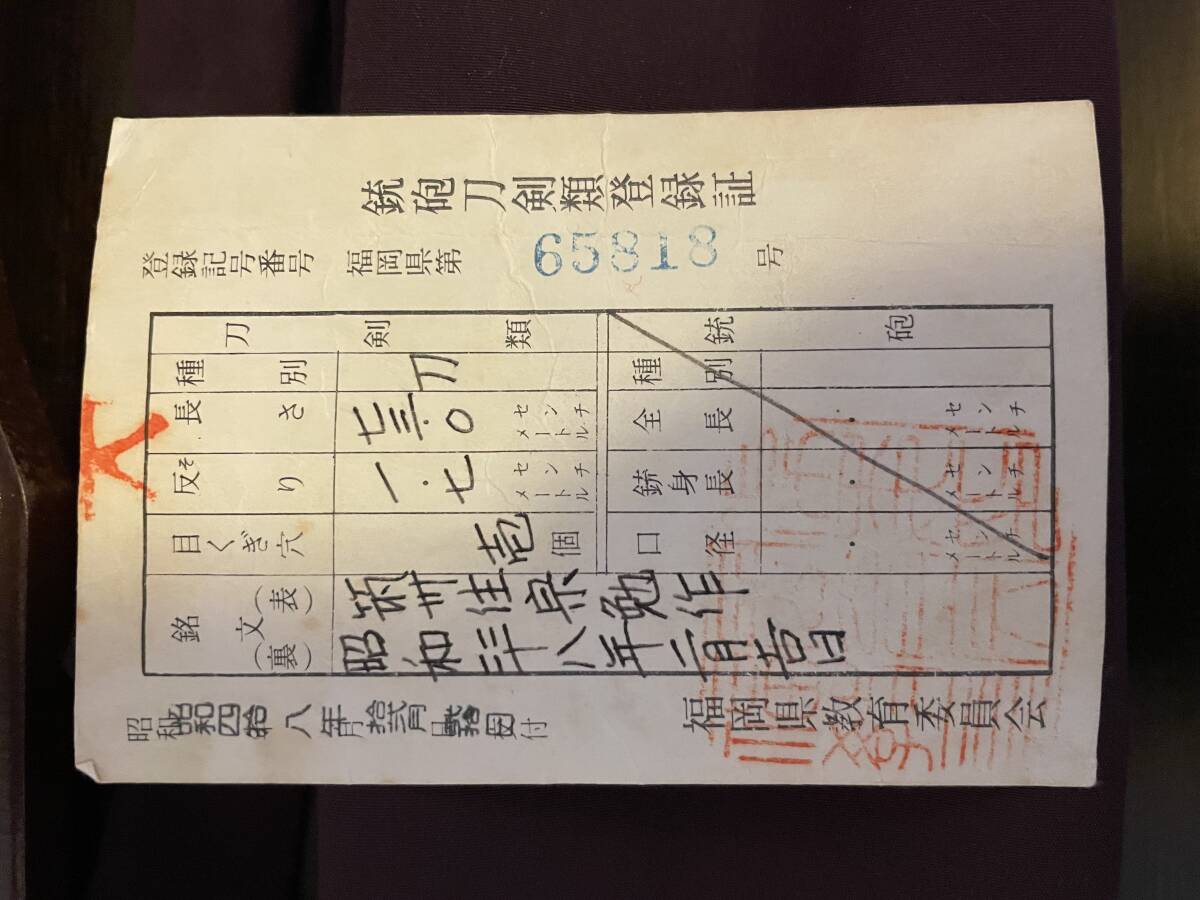 銃砲刀剣類登録証
登録記号番号 福岡県第 65818 号
刀剣類
種別 刀
長さ 七三・〇 センチメートル
反り そ 一・七 センチメートル
目くぎ穴 壱個
銘文(表) 筑州住宗勉作
(裏) 昭和三十八年二月吉日
銃砲
種別
全長 ・ センチメートル
銃身長 ・ センチメートル
口径 ・ センチメートル
昭和四拾八年拾弐月 日付
福岡県教育委員会
大